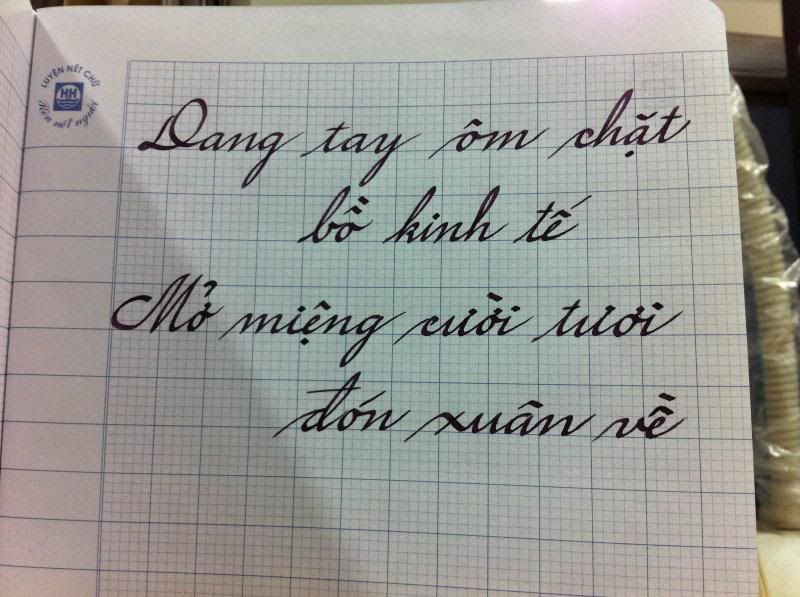 LUYỆN NÉT CHỮ
HH
Rèn nết người
Dang tay ôm chặt
bồ kinh tế
Mở miệng cười tươi
đón xuân về